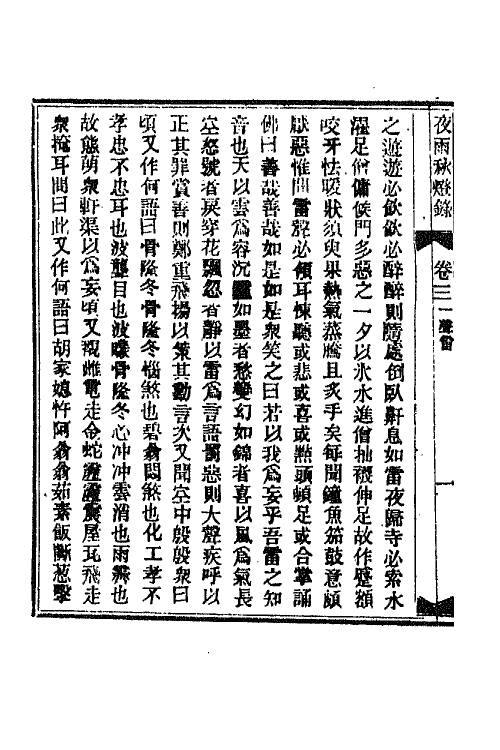 夜雨秋燈錄 卷三 一聲雷 一
之遊遊必飲飲必醉醉則隨處倒臥鼾息如雷夜歸寺必索水
濯足僧傭候門多惡之一夕以氷水進僧袖襪伸足故作蹙額
咬牙怯暖狀須臾果熱氣蒸騰且炙手矣每聞鐘魚笳鼓意頗
厭惡惟聞雷聲必傾耳悚聽或悲或喜或點頭頓足或合掌誦
佛曰善哉善哉如是如是衆笑之曰若以我爲妄乎吾雷之知
音也天以雲爲容沉如墨者愁變幻如錦者喜以風爲氣長
空怒號者戾穿花飄忽者靜以雷爲言語罰惡則大聲疾呼以
正其罪賞善則鄭重飛揚以策其勳言次又聞空中殷殷衆曰
頃又作何語曰骨隆冬骨隆冬惱煞也碧翁悶煞也化工孝不
孝忠不忠耳也波聾目也波矇骨隆冬心冲冲雲消也雨散也
故態萌衆軒渠以爲妄頃又覩雌電走金蛇震屋瓦飛走
衆掩耳問曰此又作何語曰胡家媳忤阿翁翁茹素飯斷葱擊